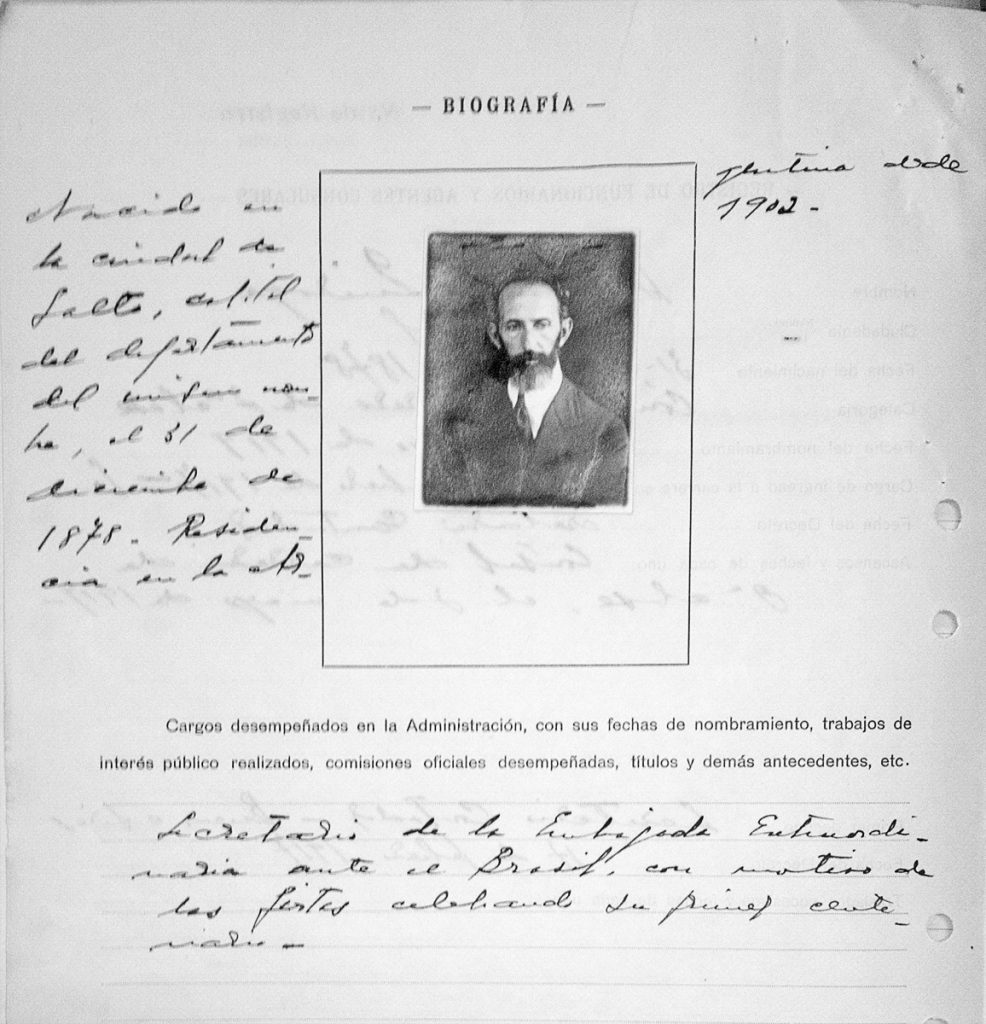 — BIOGRAFÍA —
Nacido en
la ciudad de
Salto, capital
del departamento
del mismo nom-
bre, el 31 de
diciembre de
1878. Residen-
cia en la Ar-
gentina desde
1902.-
Cargos desempeñados en la Administración, con sus fechas de nombramiento, trabajos de
interés público realizados, comisiones oficiales desempeñadas, títulos y demás antecedentes, etc.
Secretario de la Embajada Extraordi-
naria ante el Brasil, con motivo de
las fiestas celebrando su primer cente-
nario.-